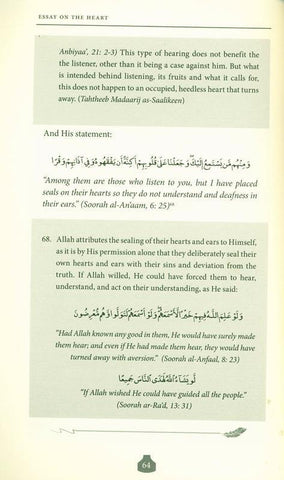 ESSAY ON THE HEART
Anbiyaa', 21: 2-3) This type of hearing does not benefit the
the listener, other than it being a case against him. But what
is intended behind listening, its fruits and what it calls for,
this does not happen to an occupied, heedless heart that turns
away. (Tahtheeb Madaarij as-Saalikeen)
And His statement:
وَمِنْهُم مَّن يَسْتَمِعُ إِلَيْكَ وَجَعَلْنَا عَلَىٰ قُلُوبِهِمْ أَكِنَّةً أَن يَفْقَهُوهُ وَفِي آذَانِهِمْ وَقْرًا
"Among them are those who listen to you, but I have placed
seals on their hearts so they do not understand and deafness in
their ears." (Soorah al-An'aam, 6: 25)⁶⁸
68. Allah attributes the sealing of their hearts and ears to Himself,
as it is by His permission alone that they deliberately seal their
own hearts and ears with their sins and deviation from the
truth. If Allah willed, He could have forced them to hear,
understand, and act on their understanding, as He said:
وَلَوْ عَلِمَ اللَّهُ فِيهِمْ خَيْرًا لَّأَسْمَعَهُمْ وَلَوْ أَسْمَعَهُمْ لَتَوَلَّوا وَّهُم مُّعْرِضُونَ
"Had Allah known any good in them, He would have surely made
them hear; and even if He had made them hear, they would have
turned away with aversion." (Soorah al-Anfaal, 8: 23)
لَّوْ يَشَاءُ اللَّهُ لَهَدَى النَّاسَ جَمِيعًا
"If Allah wished He could have guided all the people."
(Soorah ar-Ra'd, 13: 31)
64